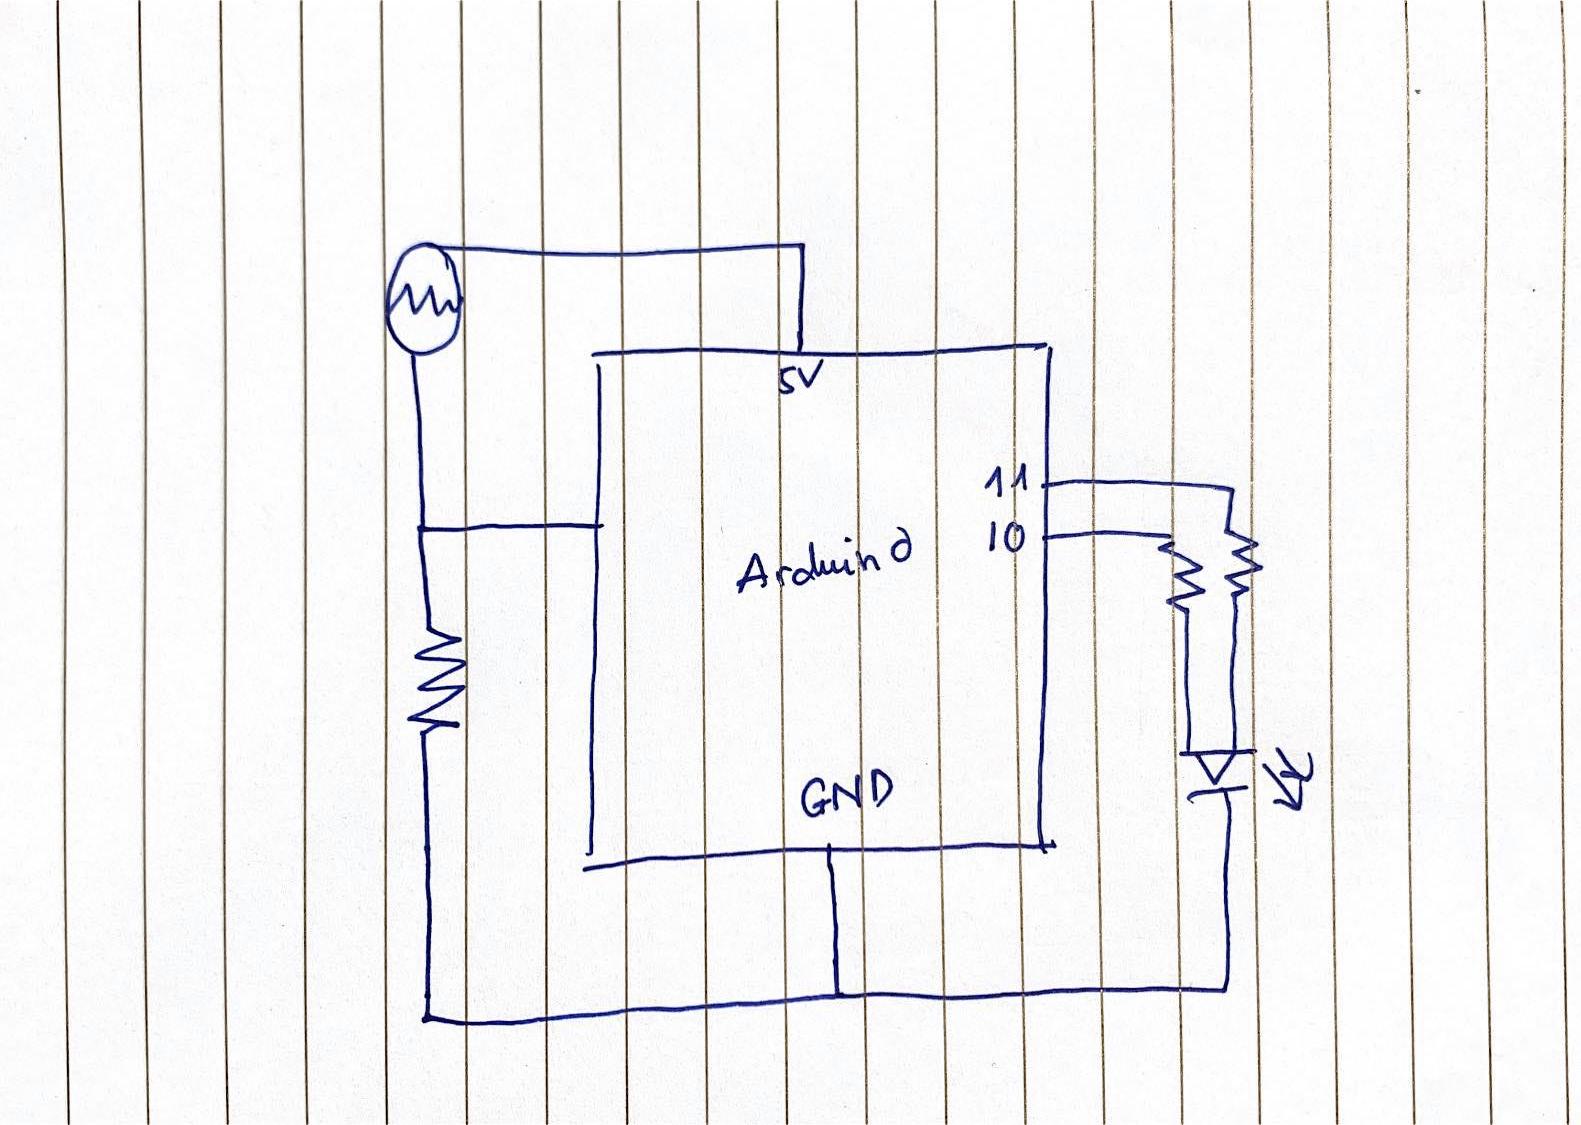 5V
11
10
Arduino
GND